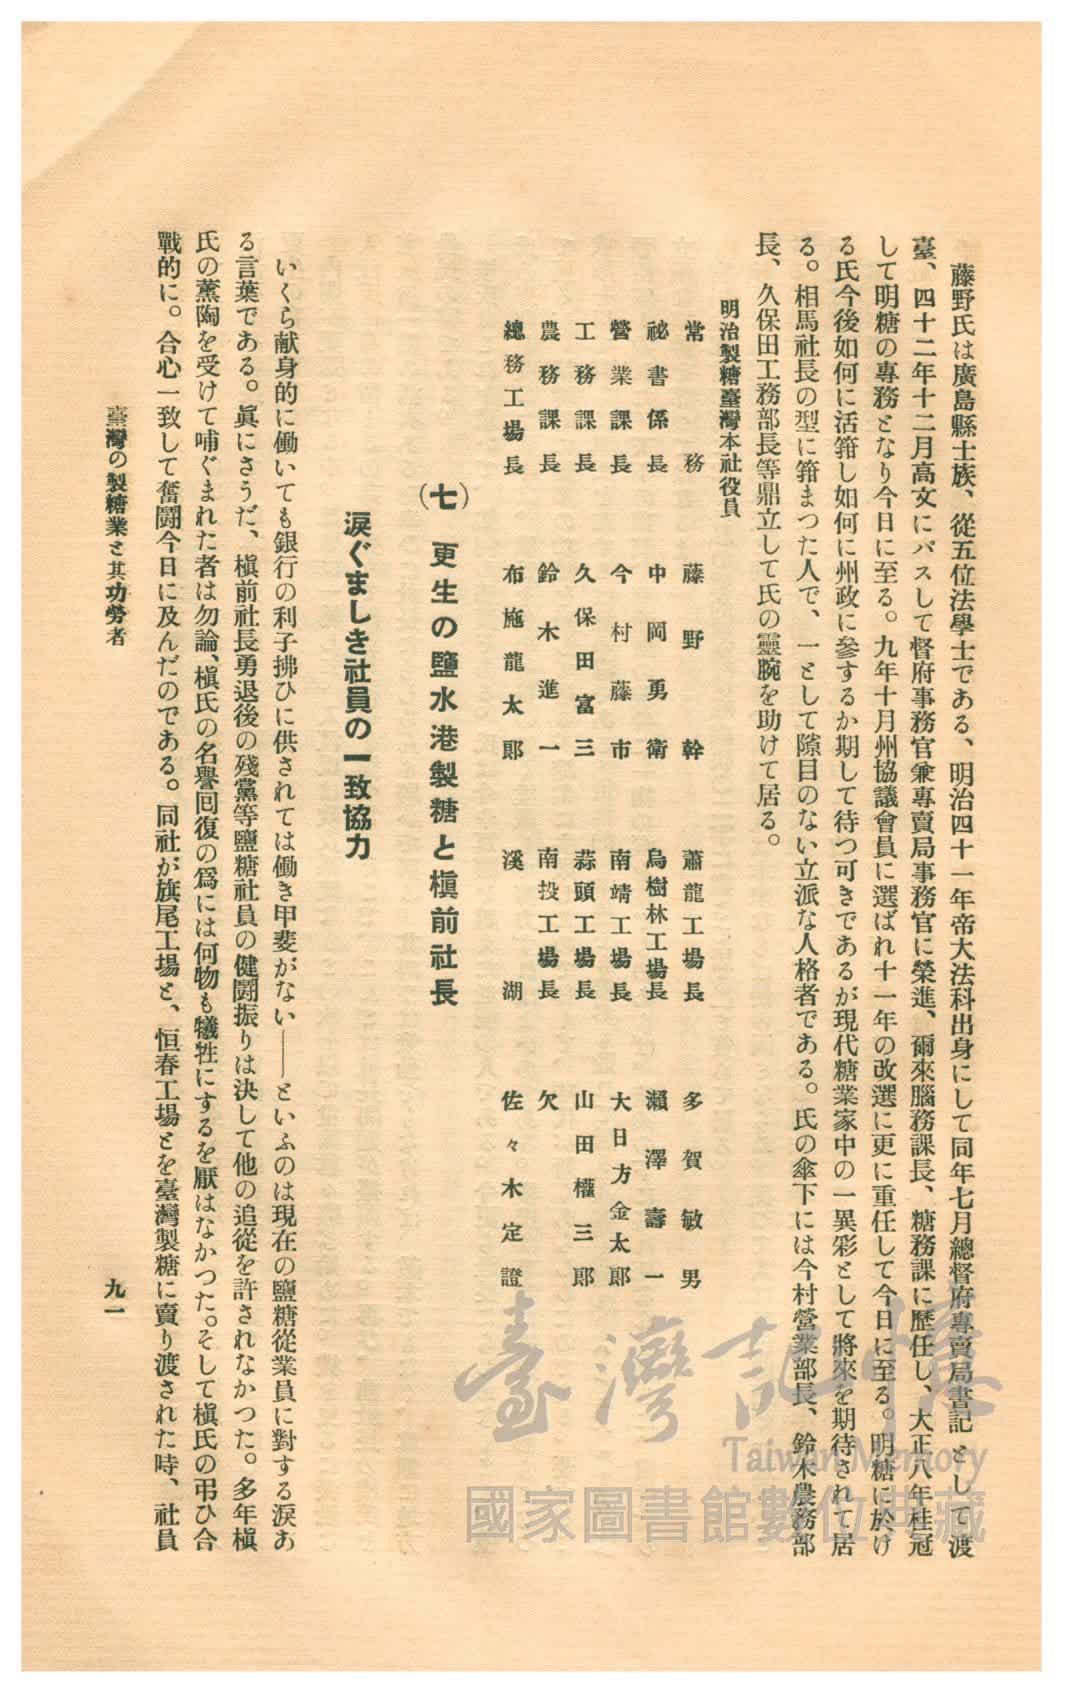 藤野氏は廣島縣士族、從五位法學士である、明治四十一年帝大法科出身にして同年七月總督府專賣局書記として渡
臺、四十二年十二月高文にパスして督府事務官兼專賣局事務官に榮進、爾來腦務課長、糖務課に歷任し、大正八年桂冠
して明糖の專務となり今日に至る。九年十月州協議會員に選ばれ十一年の改選に更に重任して今日に至る。明糖に於け
る氏今後如何に活籍し如何に州政に參するか期して待つ可きであるが現代糖業家中の一異彩として將來を期待されて居
る。相馬社長の型に箝まつた人で、一として隙目のない立派な人格者である。氏の傘下には今村營業部長、鈴木農務部
長、久保田工務部長等鼎立して氏の靈腕を助けて居る。
明治製糖臺灣本社役員
常務 藤野幹 蕭龍工場長 多賀敏男
祕書係長 中岡勇衛 烏樹林工場長 瀨澤壽一
營業課長 今村藤市 南靖工場長 大日方金太郎
工務課長 久保田富三 蒜頭工場長 山田權三郎
農務課長 鈴木進一 南投工場長 欠
總務工場長 布施龍太郎 溪湖 佐々木定證
(七) 更生の鹽水港製糖と槇前社長
淚ぐましき社員の一致協力
いくら献身的に働いても銀行の利子拂ひに供されては働き甲斐がない——といふのは現在の鹽糖從業員に對する淚あ
る言葉である。眞にさうだ、槇前社長勇退後の殘黨等鹽糖社員の健鬪振りは決して他の追從を許されなかつた。多年槇
氏の薫陶を受けて哺ぐまれた者は勿論、槇氏の名譽回復の爲には何物も犧牲にするを厭はなかつた。そして槇氏の弔ひ合
戰的に。合心一致して奮鬪今日に及んだのである。同社が旗尾工場と、恒春工場とを臺灣製糖に賣り渡された時、社員
臺灣の製糖業と其功勞者
九一
臺灣記憶
Taiwan Memory
國家圖書館數位典藏